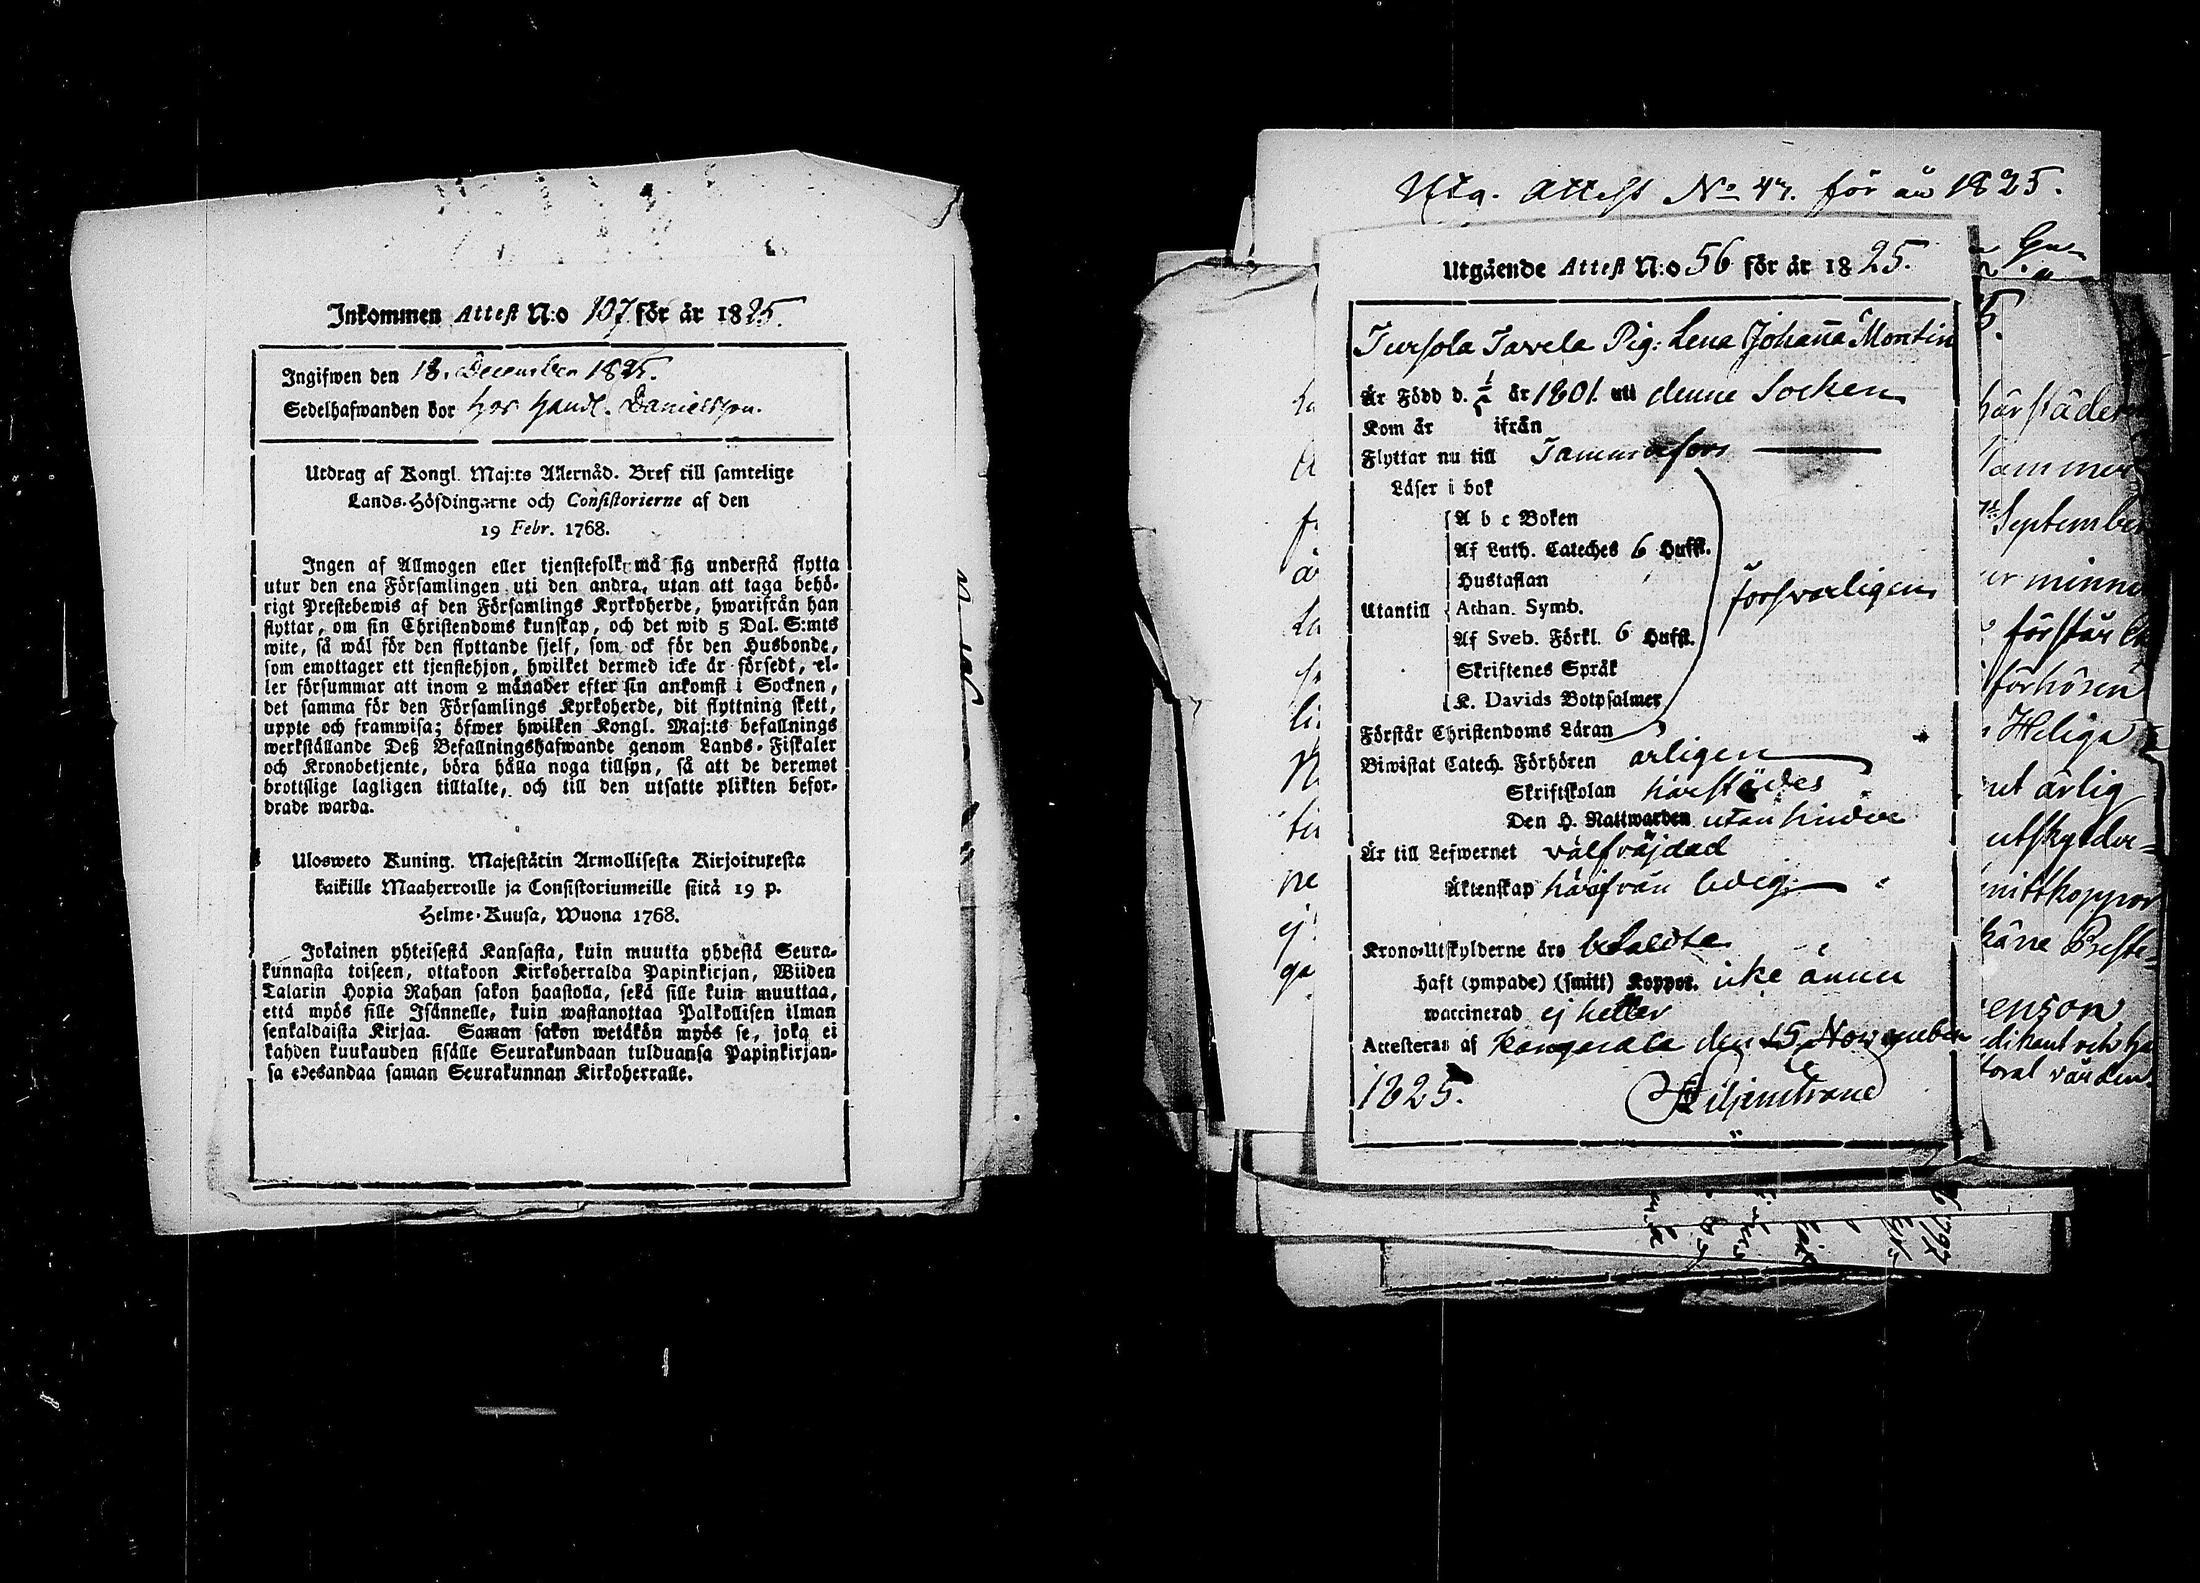 Inkommen Attest N:o 107 för år 1825.
Ingifwen den 18. December 1825.
Sedelhafwanden bor hos Handl. Danielsson.
Utdrag af Kongl. Maj:ts Allernåd. Bref till samtelige
Lands-Höfdingarne och Consistorierne af den
19 Febr. 1768.
Ingen af Allmogen eller tjenstefolk må sig understå flytta
utur den ena Församlingen uti den andra, utan att taga behö-
rigt Prestebewis af den Församlings Kyrkoherde, hwarifrån han
flyttar, om sin Christendoms kunskap, och det wid 5 Dal. S:mts
wite, så wäl för den flyttande sjelf, som ock för den Husbonde,
som emottager ett tjenstehjon, hwilket dermed icke är försedt, el-
ler försummar att inom 2 månader efter sin ankomst i Socknen,
det samma för den Församlings Kyrkoherde, dit flyttning skett,
uppte och framwisa; öfwer hwilken Kongl. Maj:ts befallnings
werkställande Deß Befallningshafwande genom Lands-Fiskaler
och Kronobetjente, böra hålla noga tillsyn, så att de deremot
brottslige lagligen tilltalte, och till den utsatte plikten befor-
drade warda.
Ulosweto Kuning. Majestätin Armollisesta Kirjoituxesta
kaikille Maaherroille ja Consistoriumeille siitä 19 p.
Helme-Kuusa, Wuona 1768.
Jokainen yhteisestä Kansasta, kuin muutta yhdestä Seura-
kunnasta toiseen, ottakoon Kirkoherralda Papinkirjan, Wiiden
Talarin Hopia Rahan sakon haastolla, sekä sille kuin muuttaa,
että myös sille Isännelle, kuin wastanottaa Palkollisen ilman
senkaldaista Kirjaa. Saman sakon wetäkön myös se, joka ei
kahden kuukauden sisälle Seurakundaan tulduansa Papinkirjan-
sa edesandaa saman Seurakunnan Kirkoherralle.
Utg. Attest No 47. för år 1825.
Utgående Attest N:o 56 för år 1825.
Jursola Tavela Pig: Lena Johanna Montin
Är Född d. 1/5 år 1801. uti denne Socken
Kom år ifrån
Flyttar nu till Tammerfors
Läser i bok
A b c Boken
Af Luth. Cateches 6 Hufst.
Hustaflan
Utantill Athan. Symb.
försvarligen
Af Sveb. Förkl. 6 Hufst.
Skriftenes Språk
K. Davids Botpsalmer
Förstår Christendoms Läran
Biwistat Catech. Förhören årligen
Skriftskolan härstädes
Den H. Nattwarden utan hinder
Är till Lefwernet välfräjdad
Äktenskap härifrån ledig
Krono-Utskylderne äro betaldte
haft (ympade) (smitt) Koppor. icke ännu
waccinerad ej heller
Attesteras af Kangasala den 15 November
1825. Liljenstrand
härstädes
September
minne
förstår
förhören
Heliga
årlig
utskylder=
smittkoppor
Preste=
enson